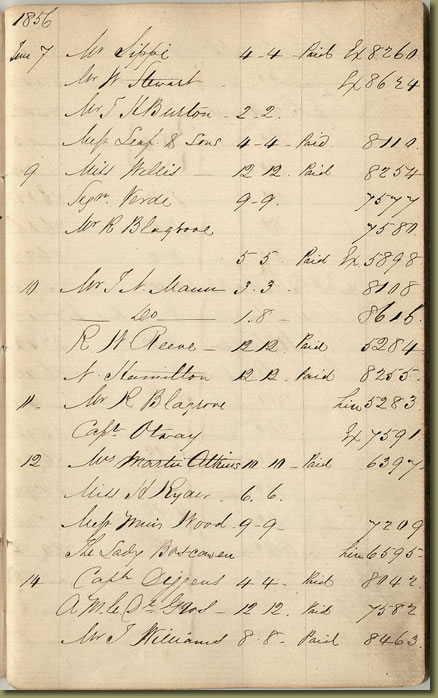 1856
June 7 Mr Lippi 4-4- Paid Ex 8260
Mr W Stewart Ex 8624
Mr J H Burton - 2-2.
Mess Leaf & Sons 4-4- Paid 8110.
9 Miss Wellis 12 12. Paid 8254
Sigr. Verdi 9-9. 7577
Mr R Blagrove 7580
5 5. Paid Ex 5898
10 Mr J N Mann 3.3. 8108
Do 1.8- 8616.
R W Reeve - 12 12. Paid 5284
N. Hamilton 12 12. Paid 8255.
11. Mr R Blagrove 5283
Capt. Otway Ex 7591
12 Mrs Martin Atkins 10 10- Paid 6397-
Miss H Ryan. 6. 6.
Mess Wood. 9-9- 7209
The Lady Boscawen 6595-
14 Capt 4 4- Paid 8042
12 12. Paid 7582
Mr J Williams 8.8- Paid 8463.